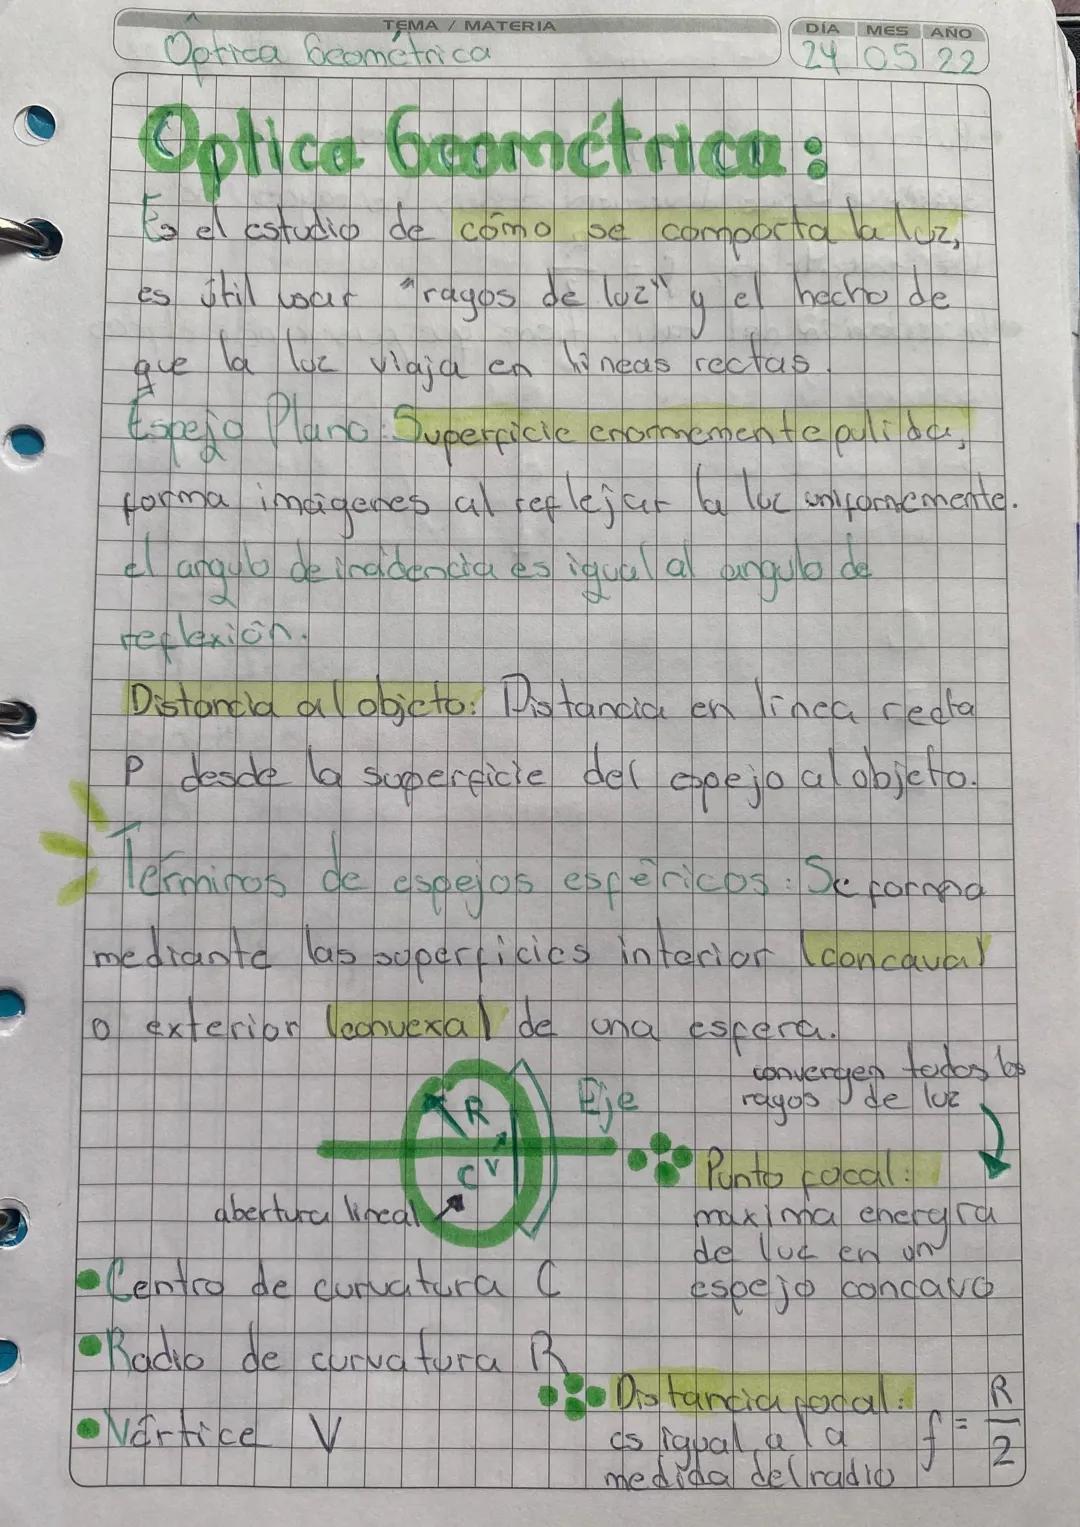 TEMA / MATERIA
Óptica Geométrica
DÍA MES AÑO
24 05 22
Optica Geométrica:
Es el estudio de cómo se comporta la luz,
es útil usar "rayos de luz" y el hecho de
que la luz viaja en lineas rectas.
Espejo Plano: Superficie enormemente pulida,
forma imágenes al reflejar la luz uniformemente.
el angulo de incidencia es igual al angulo de
reflexión.
Distancia al objeto: Distancia en línea recta
P desde la superficie del espejo al objeto.
Términos de espejos esféricos: Se forma
mediante las superficies interior (concava)
o exterior (convexa) de una esfera.
convergen todos los
rayos de luz
R
Eje
C V
abertura lineal
Punto focal:
maxima energia
de luz en un
espejo concavo
Centro de curvatura C
Radio de curvatura R
Vértice V
Distancia focal:
es igual a la
medida del radio
f = R/2